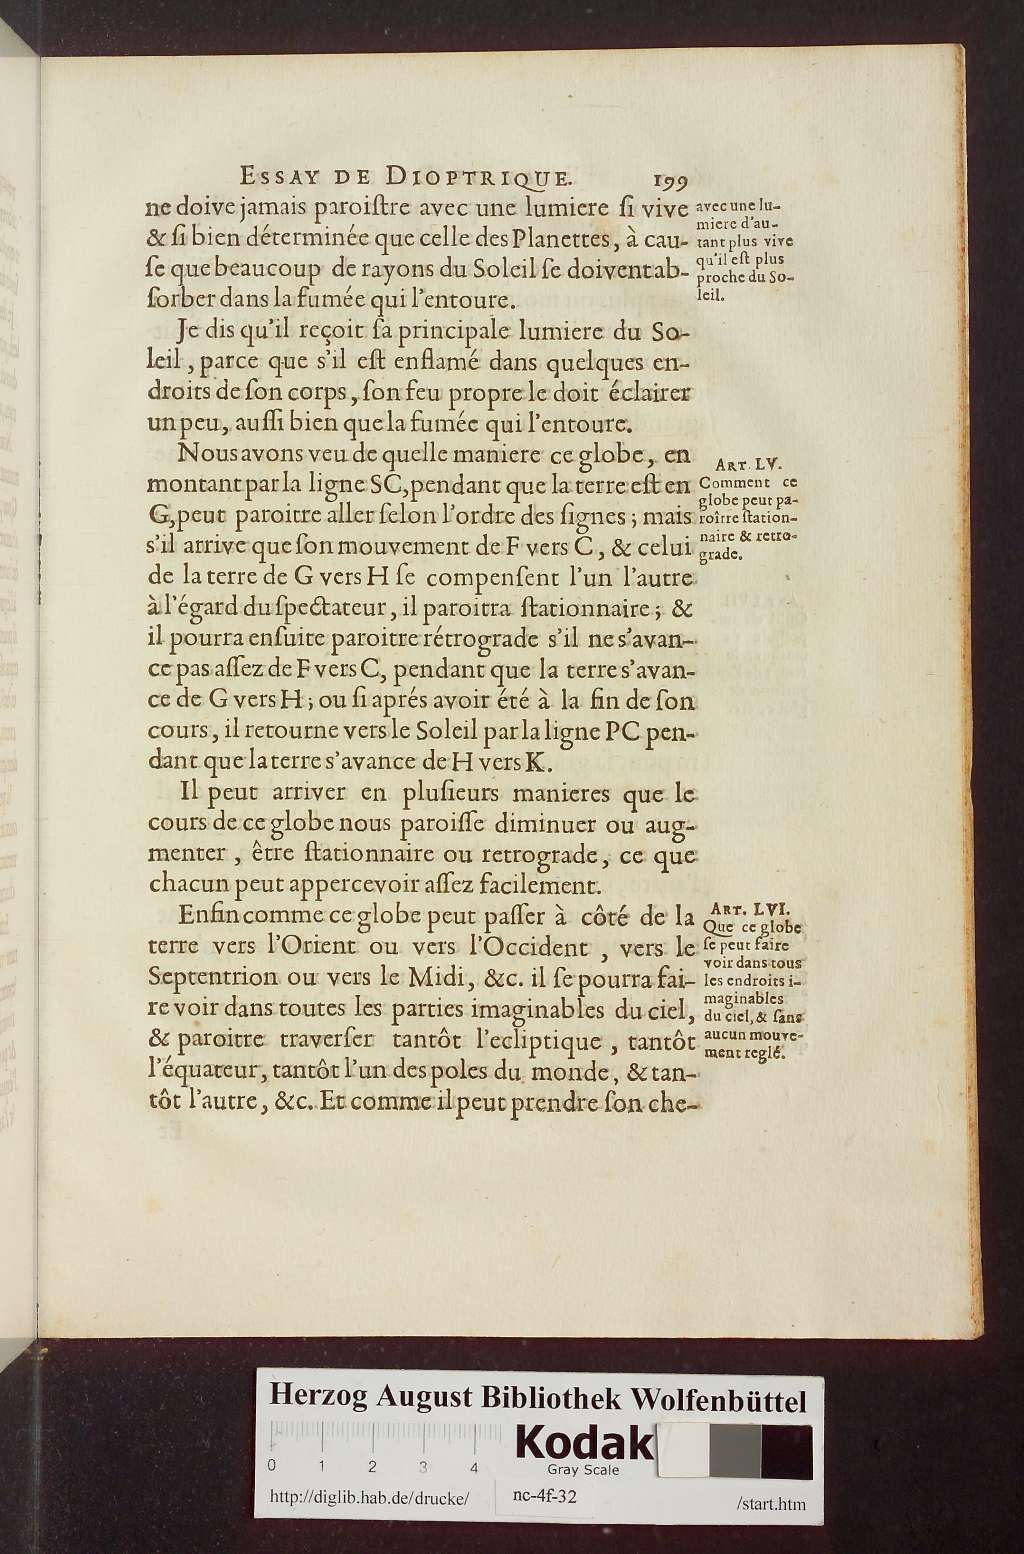 ESSAY DE DIOPTRIQUE. 199
ne doive jamais paroiſtre avec une lumiere ſi vive
& ſi bien déterminée que celle des Planettes, à cau-
ſe que beaucoup de rayons du Soleil ſe doivent ab-
ſorber dans la fumée qui l'entoure.
avec une lu-
miere d'au-
tant plus vive
qu'il eſt plus
proche du So-
leil.
Je dis qu'il reçoit ſa principale lumiere du So-
leil, parce que s'il eſt enflamé dans quelques en-
droits de ſon corps, ſon feu propre le doit éclairer
un peu, auſſi bien que la fumée qui l'entoure.
Nous avons veu de quelle maniere ce globe, en
montant par la ligne SC, pendant que la terre eſt en
G, peut paroitre aller ſelon l'ordre des ſignes; mais
s'il arrive que ſon mouvement de F vers C, & celui
de la terre de G vers H ſe compenſent l'un l'autre
à l'égard du ſpectateur, il paroitra ſtationnaire; &
il pourra enſuite paroitre rétrograde s'il ne s'avan-
ce pas aſſez de F vers C, pendant que la terre s'avan-
ce de G vers H; ou ſi aprés avoir été à la fin de ſon
cours, il retourne vers le Soleil par la ligne PC pen-
dant que la terre s'avance de H vers K.
ART. LV.
Comment ce
globe peut pa-
roître ſtation-
naire & retro-
grade.
Il peut arriver en pluſieurs manieres que le
cours de ce globe nous paroiſſe diminuer ou aug-
menter, être ſtationnaire ou retrograde, ce que
chacun peut appercevoir aſſez facilement.
Enfin comme ce globe peut paſſer à côté de la
terre vers l'Orient ou vers l'Occident, vers le
Septentrion ou vers le Midi, &c. il ſe pourra fai-
re voir dans toutes les parties imaginables du ciel,
& paroitre traverſer tantôt l'ecliptique, tantôt
l'équateur, tantôt l'un des poles du monde, & tan-
tôt l'autre, &c. Et comme il peut prendre ſon che-
ART. LVI.
Que ce globe
ſe peut faire
voir dans tous
les endroits i-
maginables
du ciel, & ſans
aucun mouve-
ment reglé.
Herzog August Bibliothek Wolfenbüttel
0 1 2 3 4
Kodak
Gray Scale
http://diglib.hab.de/drucke/ nc-4f-32 /start.htm